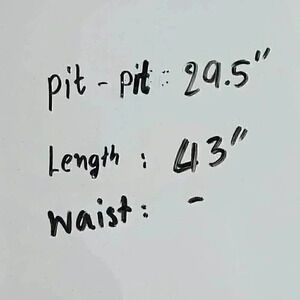 pit - pit : 29.5"
Length : 43"
Waist : -